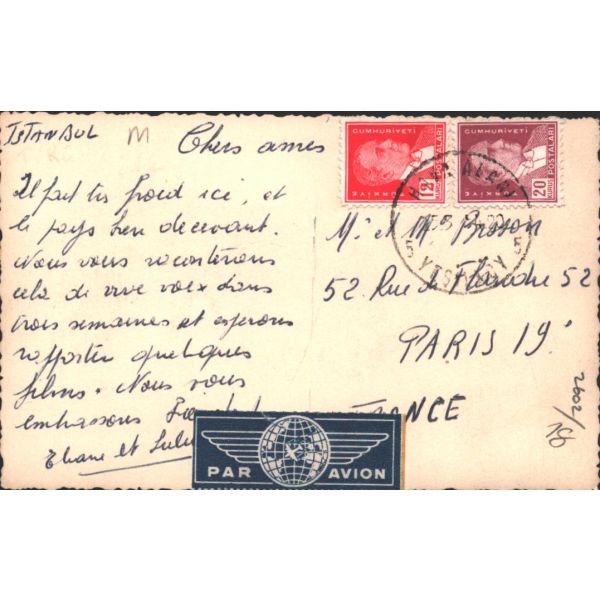 ISTANBUL
M
Chers amis
Il fait très froid ici, et
le pays bien decevant.
Nous vous raconterons
cela de vive voix dans
trois semaines et esperons
rapporter quelques
films. Nous vous
embrassons
Eliane et
CUMHURİYETİ
POSTALARI
12
KURUŞ
CUMHURİYETİ
POSTALARI
20
KURUŞ
Mr et Mme
52. Rue de Flandre 52
PARIS 19e
FRANCE
PAR AVION
2002/